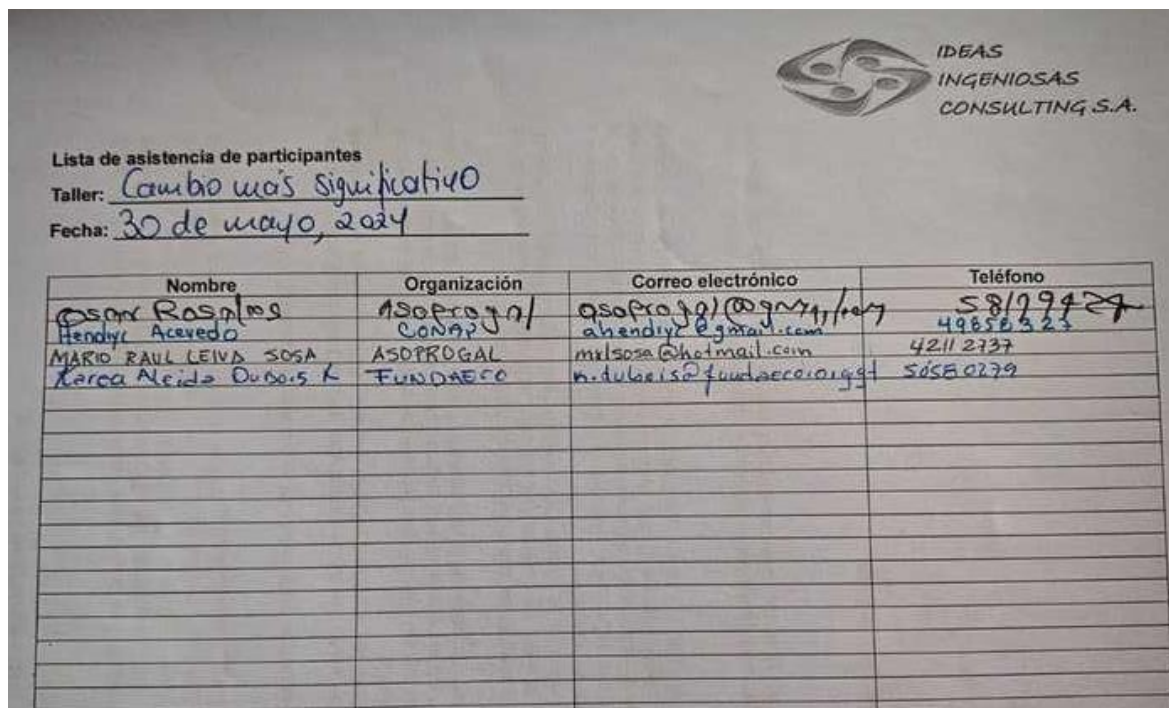 IDEAS
INGENIOSAS
CONSULTING S.A.
Lista de asistencia de participantes
Taller: Cambio más significativo
Fecha: 30 de mayo, 2024
Nombre Organización Correo electrónico Teléfono
Oscar Rosales Asoprogal asoprogal@gmail.com
Hendiyc Acevedo CONAP ahendiyc@gmail.com 49856323
MARIO RAUL LEIVA SOSA ASOPROGAL mrlsosa@hotmail.com 4211 2737
Neida Dubois K FUNDAECO n.dubois@fundaeco.org.gt